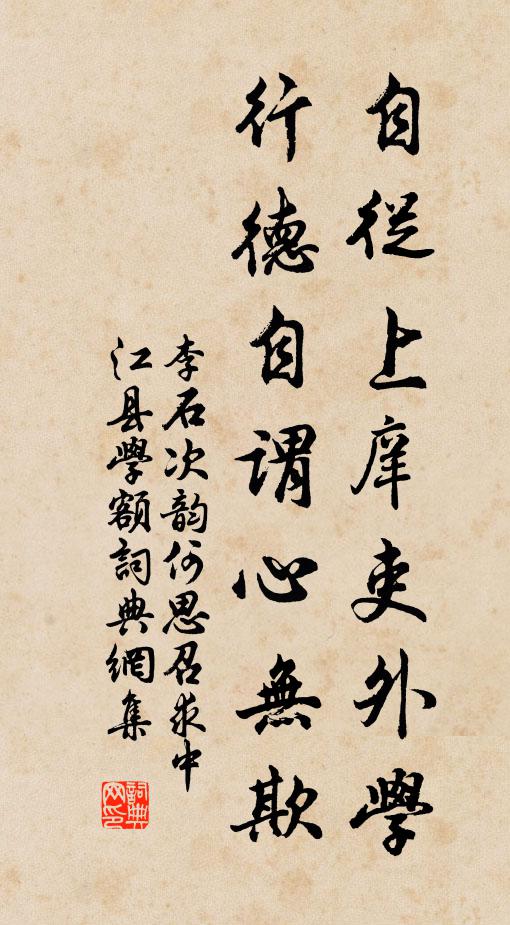 自從上庠吏外學
行德自謂心無欺
李石次韵何思召求中
江县學額詞典網集
詞典网印